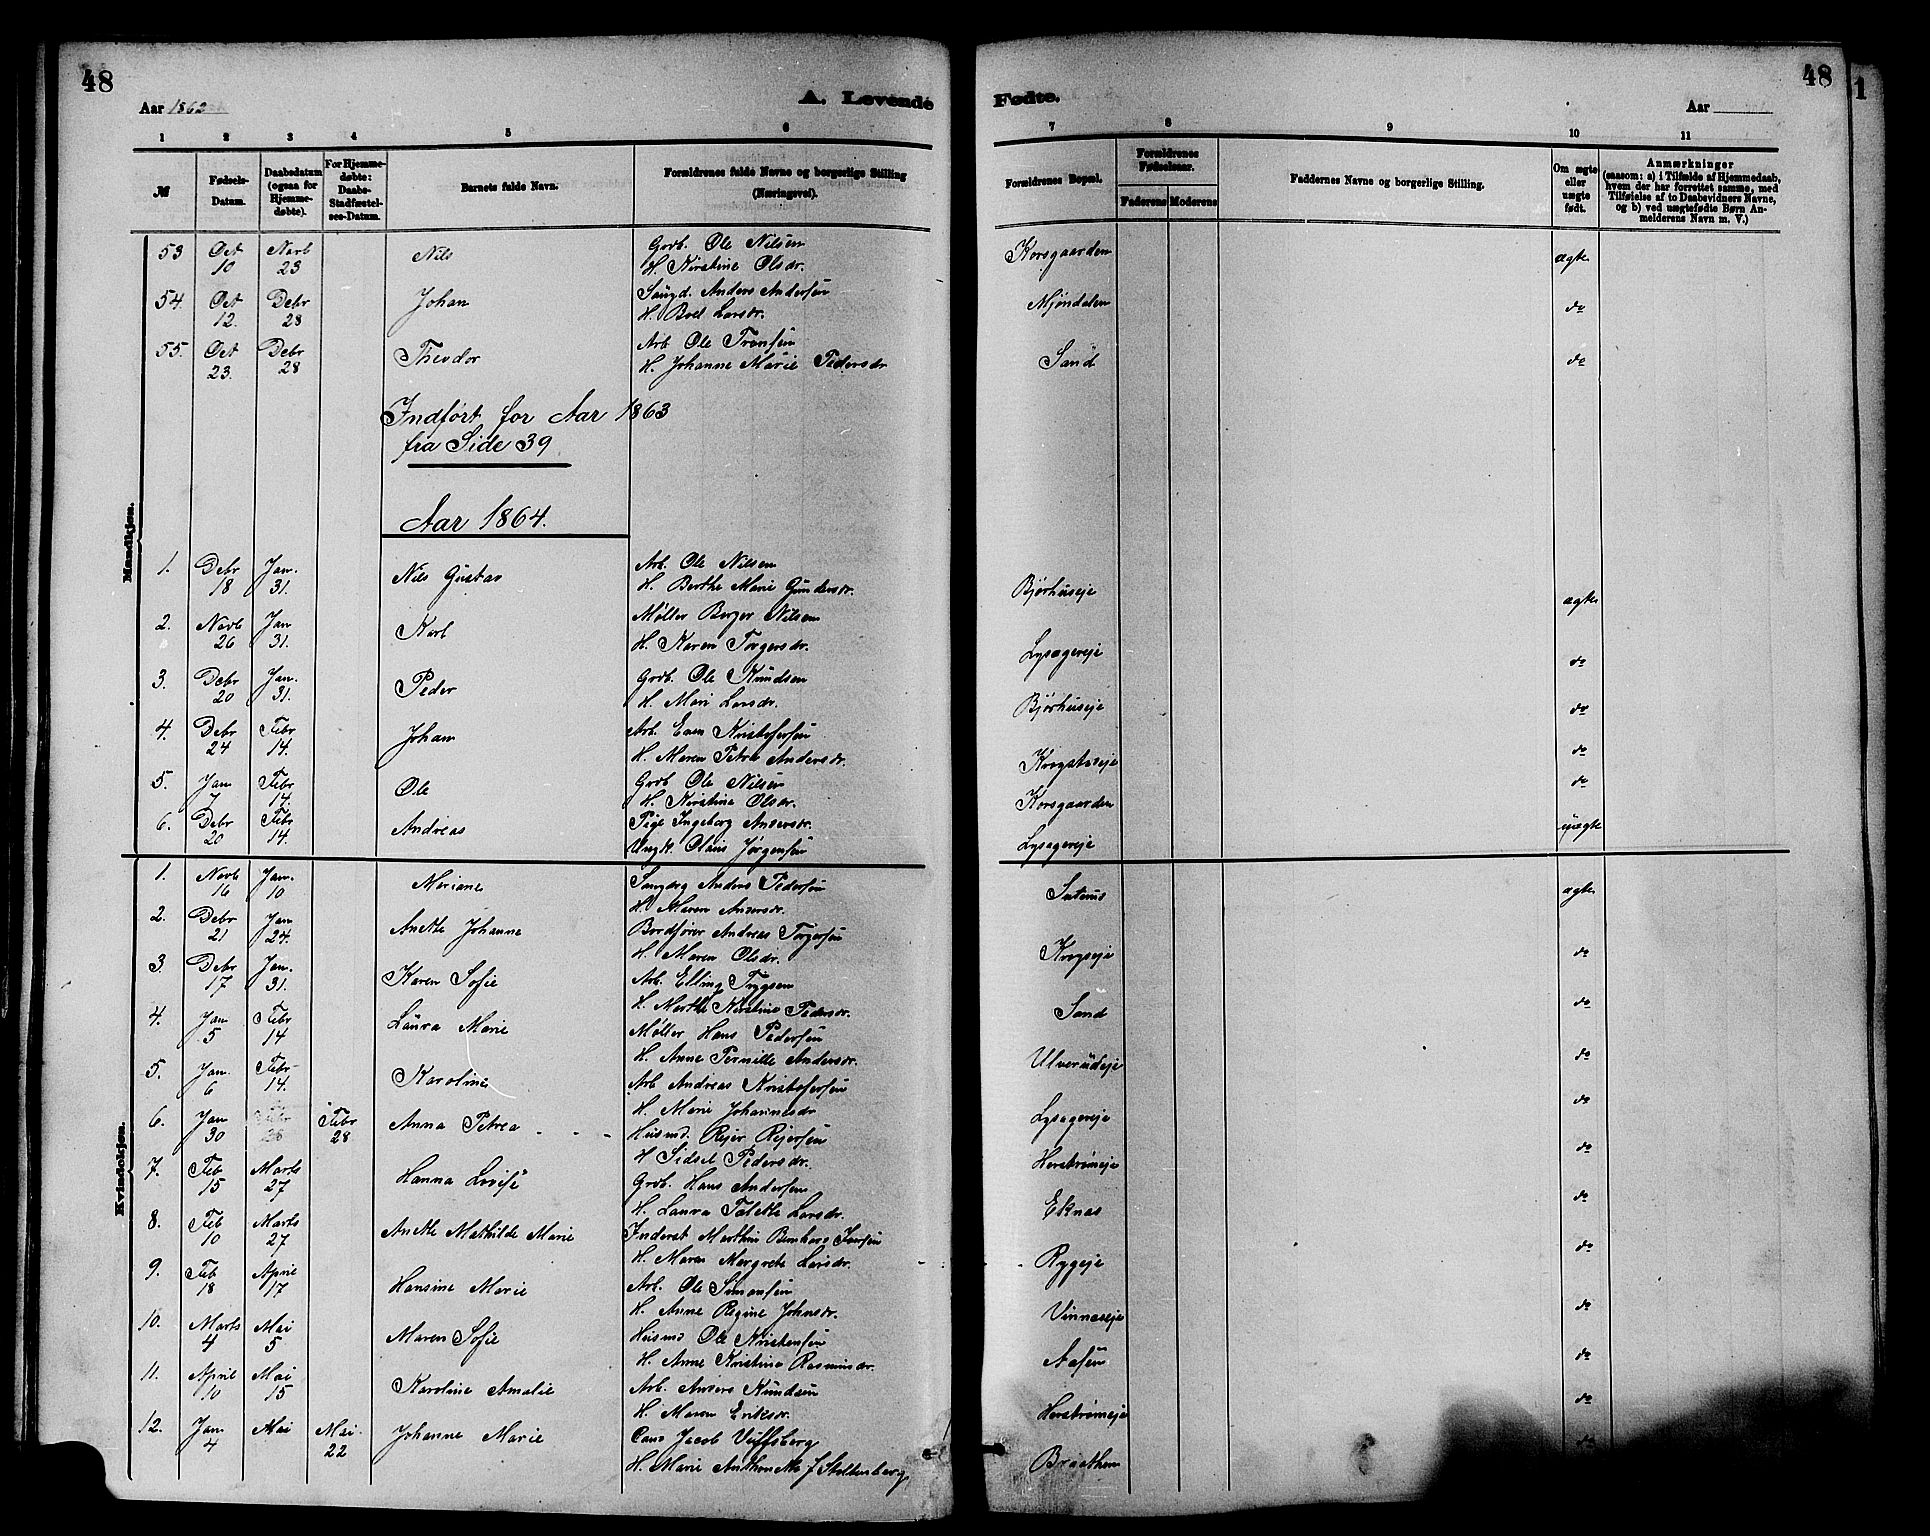 48
Aar 1862
A. Levende
1 2 3 4 5 6
№ Fødsels-Datum. Daabsdatum (ogsaa for Hjemmedøbte). For Hjemmedøbte: Daabs-Stadfæstelses-Datum. Barnets fulde Navn. Forældrenes fulde Navne og borgerlige Stilling (Næringsvei).
Mandkjøn.
53 Oct 10 Novb 23 Nils Grdb. Ole Nilsen
H. Kirstine Olsdr.
54. Oct 12. Debr 28 Johan Saugd. Anders Andersen
H. Boel Larsdr.
55. Oct 23. Debr 28 Theodor Arb. Ole Tronsen
H. Johanne Marie Pedersdr
Indført for Aar 1863
fra Side 39
Aar 1864.
1. Debr 18 Jan. 31. Nils Gustav Arb. Ole Nilsen
H. Berthe Marie Gundersdr.
2. Novb 26 Jan 31. Karl Møller Berger Nilsen
H. Karen Torgersdr.
3. Debr 20 Jan. 31. Peder Grdb. Ole Knudsen
H. Mari Larsdr.
4. Debr 24 Febr 14. Johan Arb. Even Kristofersen
H. Maren Petra Andersdr.
5. Jan 7 Febr 14. Ole Grdb. Ole Nilsen
H. Kirstine Olsdr.
6. Debr 20 Febr 14. Andreas Pige Ingeborg Andersdr.
Ungk. Olaus Jørgensen
Kvindekjøn.
1. Novb 16 Jan. 10 Mariane Anders Pedersen
H. Maren Andersdr.
2. Debr 21 Jan 24. Anette Johanne Bordfører Andreas Torgersen
H. Maren Olsdr.
3. Debr 17 Jan. 31. Karen Sofie Arb. Elling Trygsen
H. Marthe Kirstine Pedersdr.
4. Jan 5 Febr 14 Laura Marie Møller Hans Pedersen
H. Anne Pernille Andersdr.
5. Jan. 6 Febr 14. Karoline Arb Andreas Kristofersen
H. Marie Johannesdr
6. Jan 30 Febr 28 Febr 28 Anna Petrea Husmd. Rejer Rejersen
H Sidsel Pedersdr.
7. Feb 15 Marts 27 Hanna Lovise Grdb. Hans Andersen
H. Laura Larsdr.
8. Feb 10 Marts 27 Anette Mathilde Marie Inderst Marthin Bernhard
H. Maren Margrete Larsdr.
9. Feb 18 April 17 Hansine Marie Arb. Ole Simonsen
H. Anne Regine Johnsdr.
10. Marts 4 Mai 5 Maren Sofie Husmd Ole Kristensen
H. Anne Kristine Rasmusdr.
11. April 10 Mai 15 Karoline Amalie Arb. Anders Knudsen
H. Maren Eriksdr.
12. Jan 4 Mai Mai 22 Johanne Marie Cand Jacob
H. Marie Anthonette f Stoltenberg
48
1
Fødte.
Aar
7 8 9 10 11
Forældrenes Bopæl. Forældrenes Fødselsaar. Faderens Moderens Faddernes Navne og borgerlige Stilling. Om ægte eller uægte født. Anmærkninger (saasom: a) i Tilfælde af Hjemmedaab, hvem der har forrettet samme, med Tilføielse af to Daabsvidners Navne, og b) ved uægtefødte Børn Anmelderens Navn m. V.)
Korsgaarden ægte
Mjøndalen do
Sand do
Bjørhuseje ægte
Lysagereje do
Bjørhuseje do
Krogstadeje do
Korsgaarden do
Lysagereje uægte
ægte
Krogseje do
Sand do
Ulverudeje do
Lysagereje do
Horstrømeje do
Eknas do
Ryggeje do
Vinneseje do
Aasen do
Horstrømeje do
Braathem do